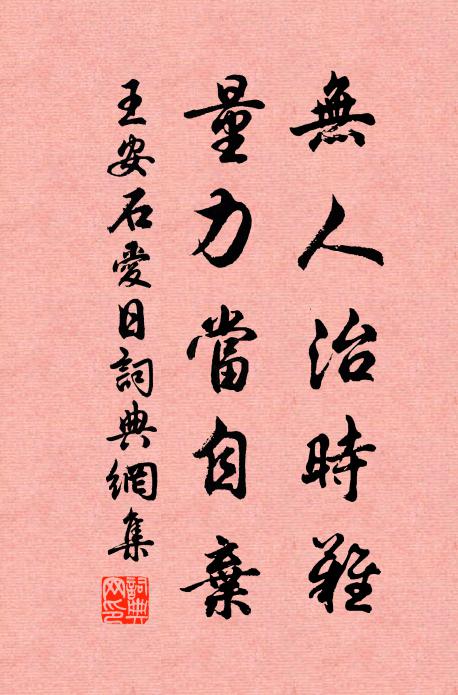 無人治時難
量力當自棄
王安石愛日詞典網集
詞典網印